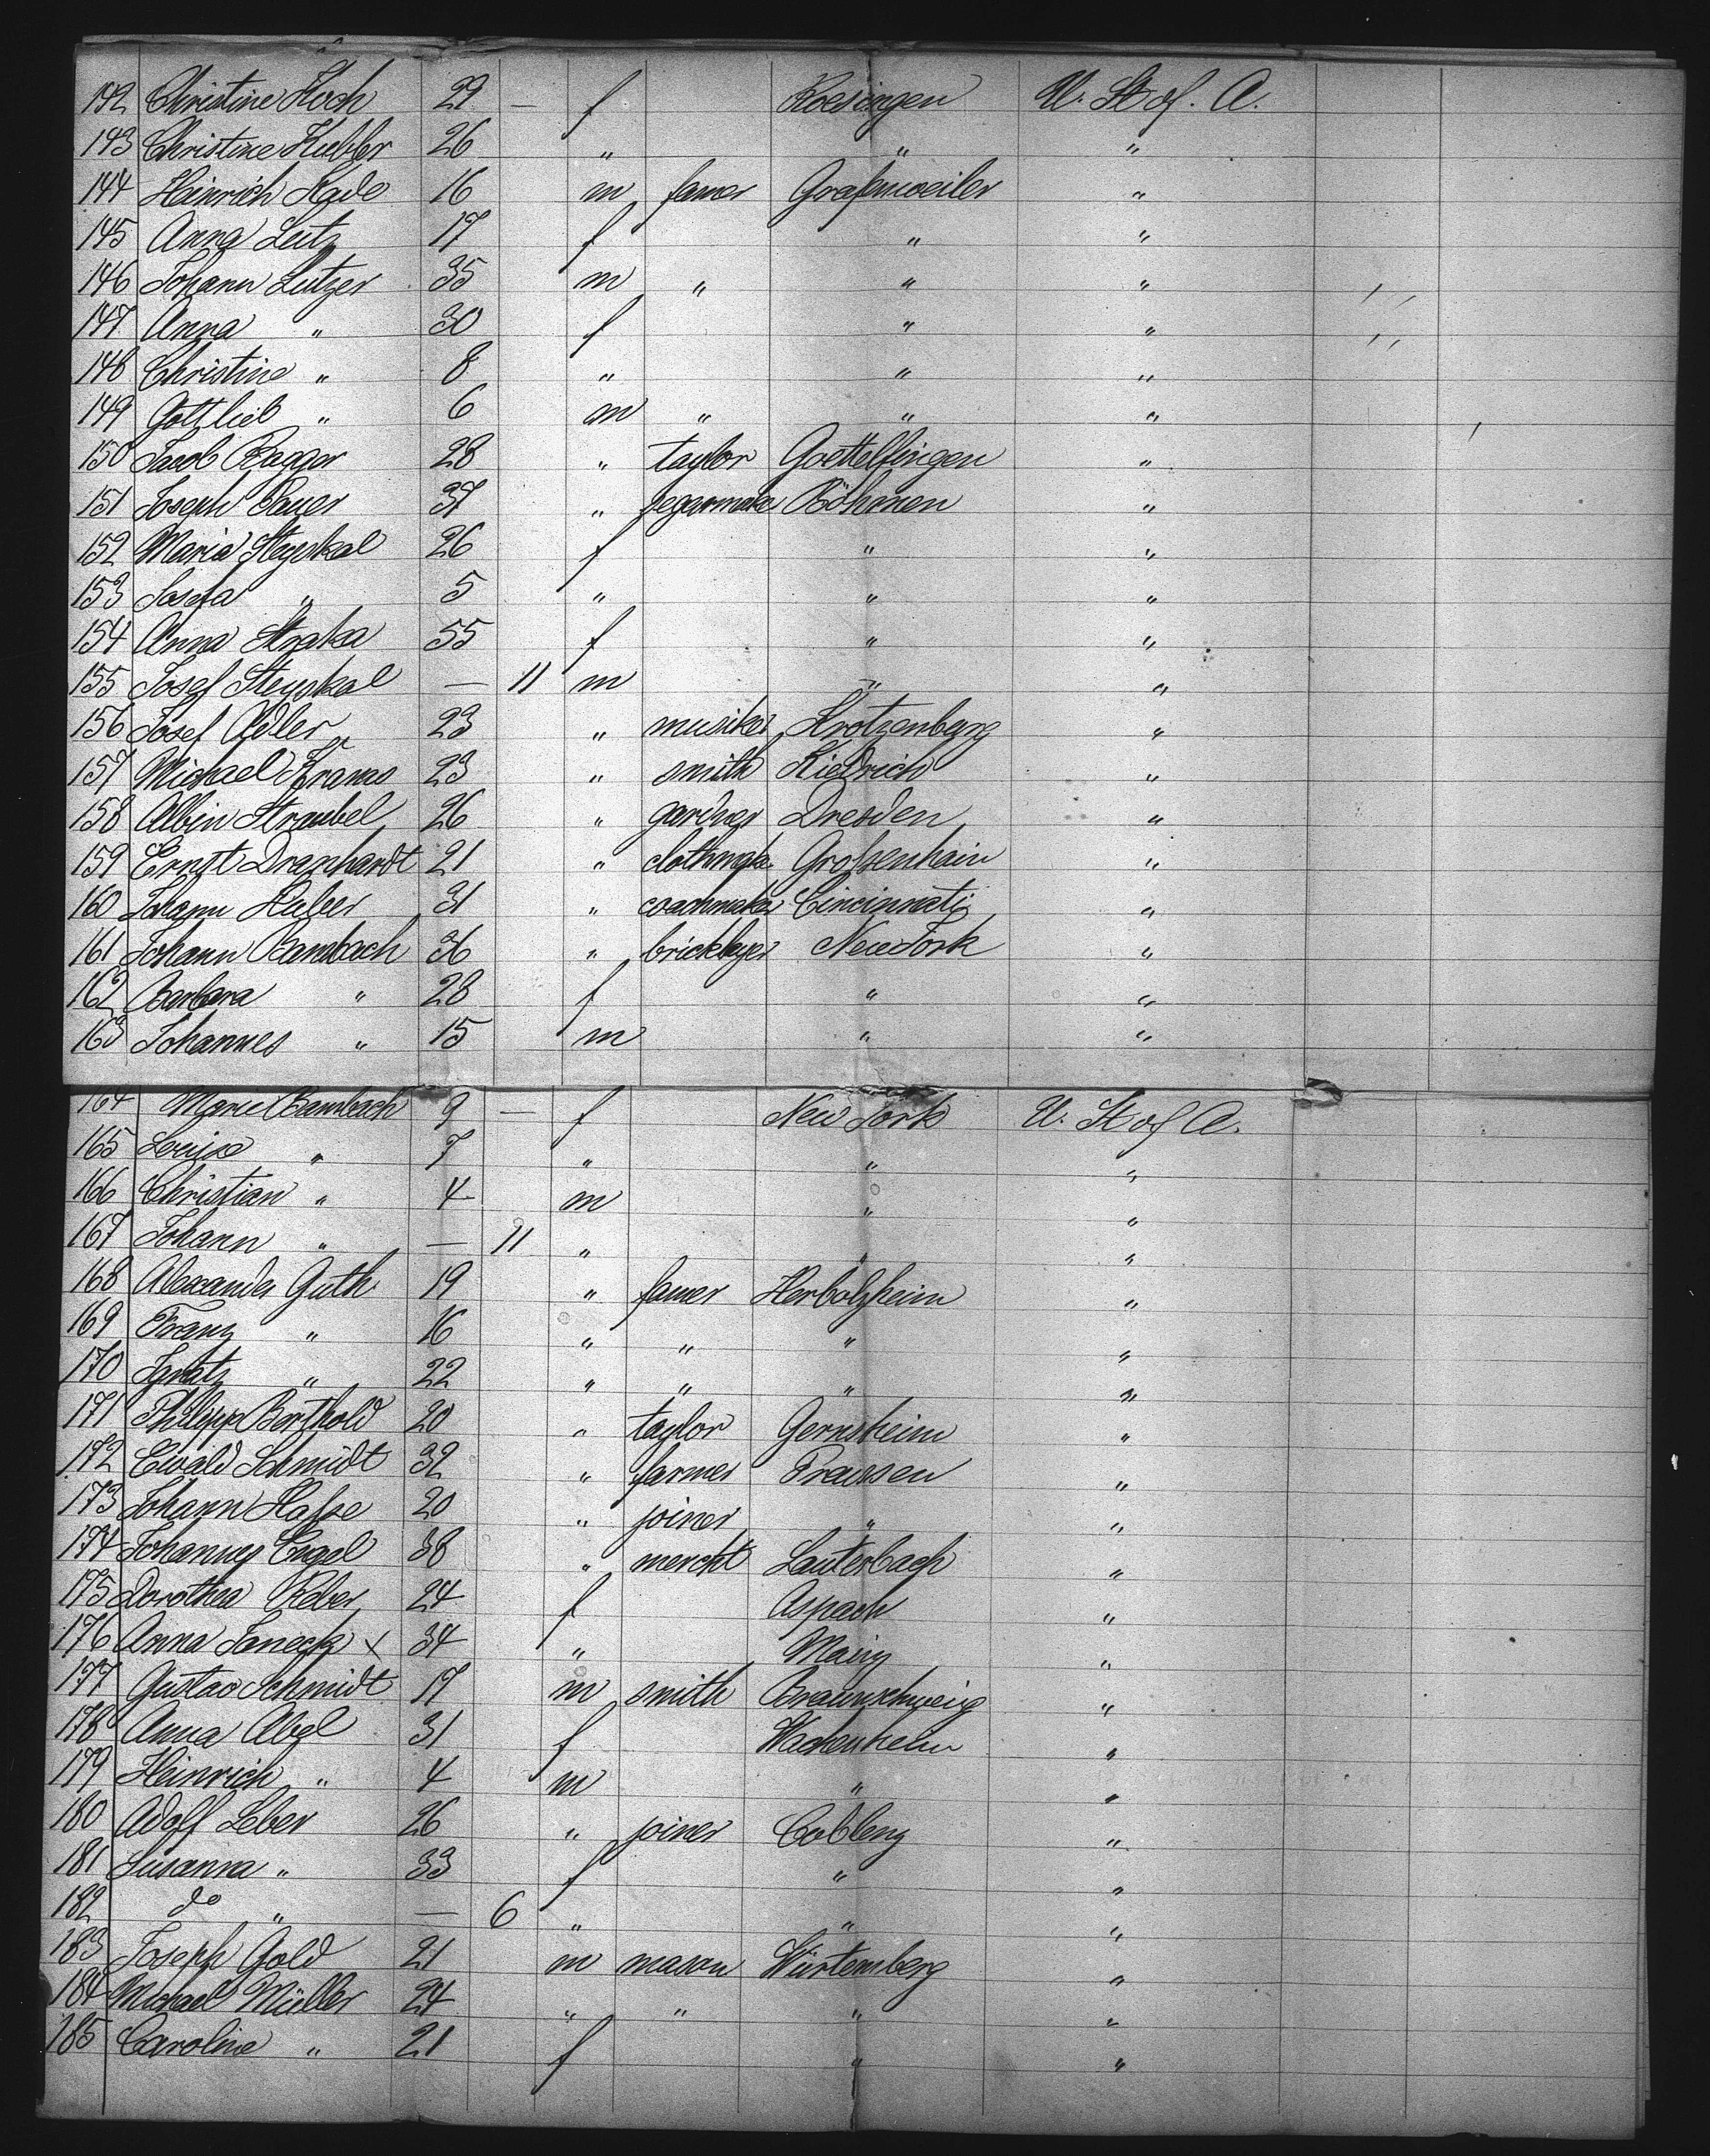 142 Christine Koch 29 — f Roesingen U. St of. A.
143 Christine Kubler 26 " " "
144 Heinrich Kade 16 m famer Grafenweiler "
145 Anna Lutz 17 f " "
146 Johann Lutzer 35 m " " "
147 Anna " 30 f " "
148 Christine " 8 " " "
149 Gottlieb " 6 m " " "
150 Jacob Ragger 28 " taylor Goettelfingen "
151 Joseph Bauer 37 " Böhmen "
152 Maria Steyskal 26 f " "
153 Josefa " 5 " " "
154 Anna Straka 55 f " "
155 Josef Steyskal — 11 m " "
156 Josef Adler 23 " musiker Krotzenburg "
157 Michael Krams 23 " smith Kiedrich "
158 Albin Straubel 26 " gardner Dresden "
159 Ernst Dranhardt 21 " clothmak Großenhain "
160 Johann Huber 31 " coachmaker Cincinnati "
161 Johann Bambach 36 " bricklayer New York "
162 Barbara " 28 f " "
163 Johannes " 15 m " "
164 Marie Bambach 9 — f New York U. St of A.
165 Louise " 7 " " "
166 Christian " 4 m " "
167 Johann " — 11 " " "
168 Alexander Guth 19 " famer Herbolzheim "
169 Franz " 16 " " " "
170 Ignatz " 22 " " " "
171 Philipp Berthold 20 " taylor Gernsheim "
172 Ewald Schmidt 32 " farmer Preussen "
173 Johann Haße 20 " joiner " "
174 Johannes Engel 38 " mercht Lauterbach "
175 Dorothea Reber 24 f Aspach "
176 Anna x 34 " Mainz "
177 Gustav Schmidt 17 m smith Braunschweig "
178 Anna Abel 31 f Wachenheim "
179 Heinrich " 4 m " "
180 Adolf Leber 26 " joiner Coblenz "
181 Susanna " 33 f " "
182 do " — 6 " " "
183 Joseph Gold 21 m mason Würtemberg "
184 Michael Müller 24 " " " "
185 Caroline " 21 f " "